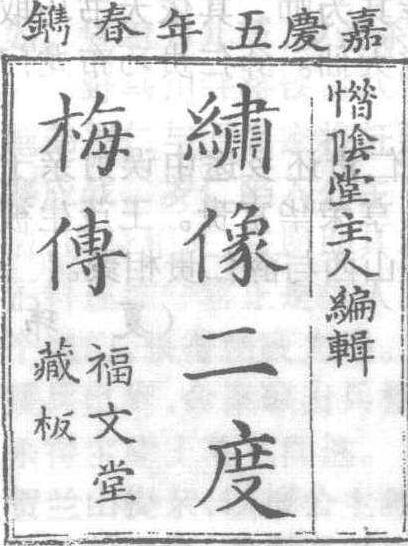 嘉慶五年春鐫
惜陰堂主人編輯
繡像二度
梅傳
福文堂
藏板